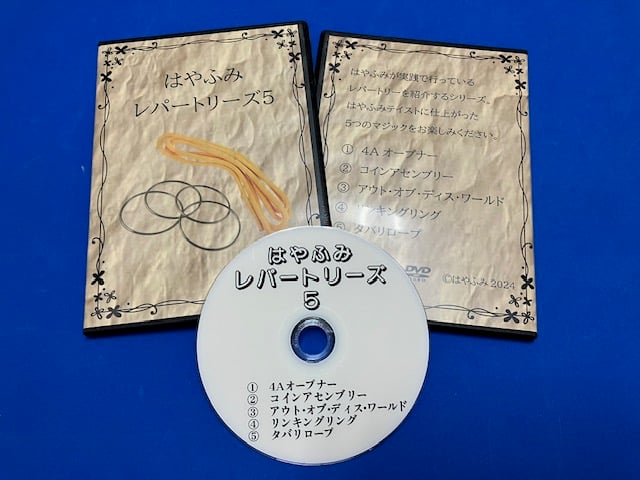 はやふみ
レパートリーズ5
はやふみが実践で行っている
レパートリーを紹介するシリーズ。
はやふみテイストに仕上がった
5つのマジックをお楽しみください。
① 4Aオープナー
② コインアセンブリー
③ アウト・オブ・ディス・ワールド
④ リンキングリング
⑤ タバリロープ
DVD
©はやふみ 2024
はやふみ
レパートリーズ
5
① 4Aオープナー
② コインアセンブリー
③ アウト・オブ・ディス・ワールド
④ リンキングリング
⑤ タバリロープ